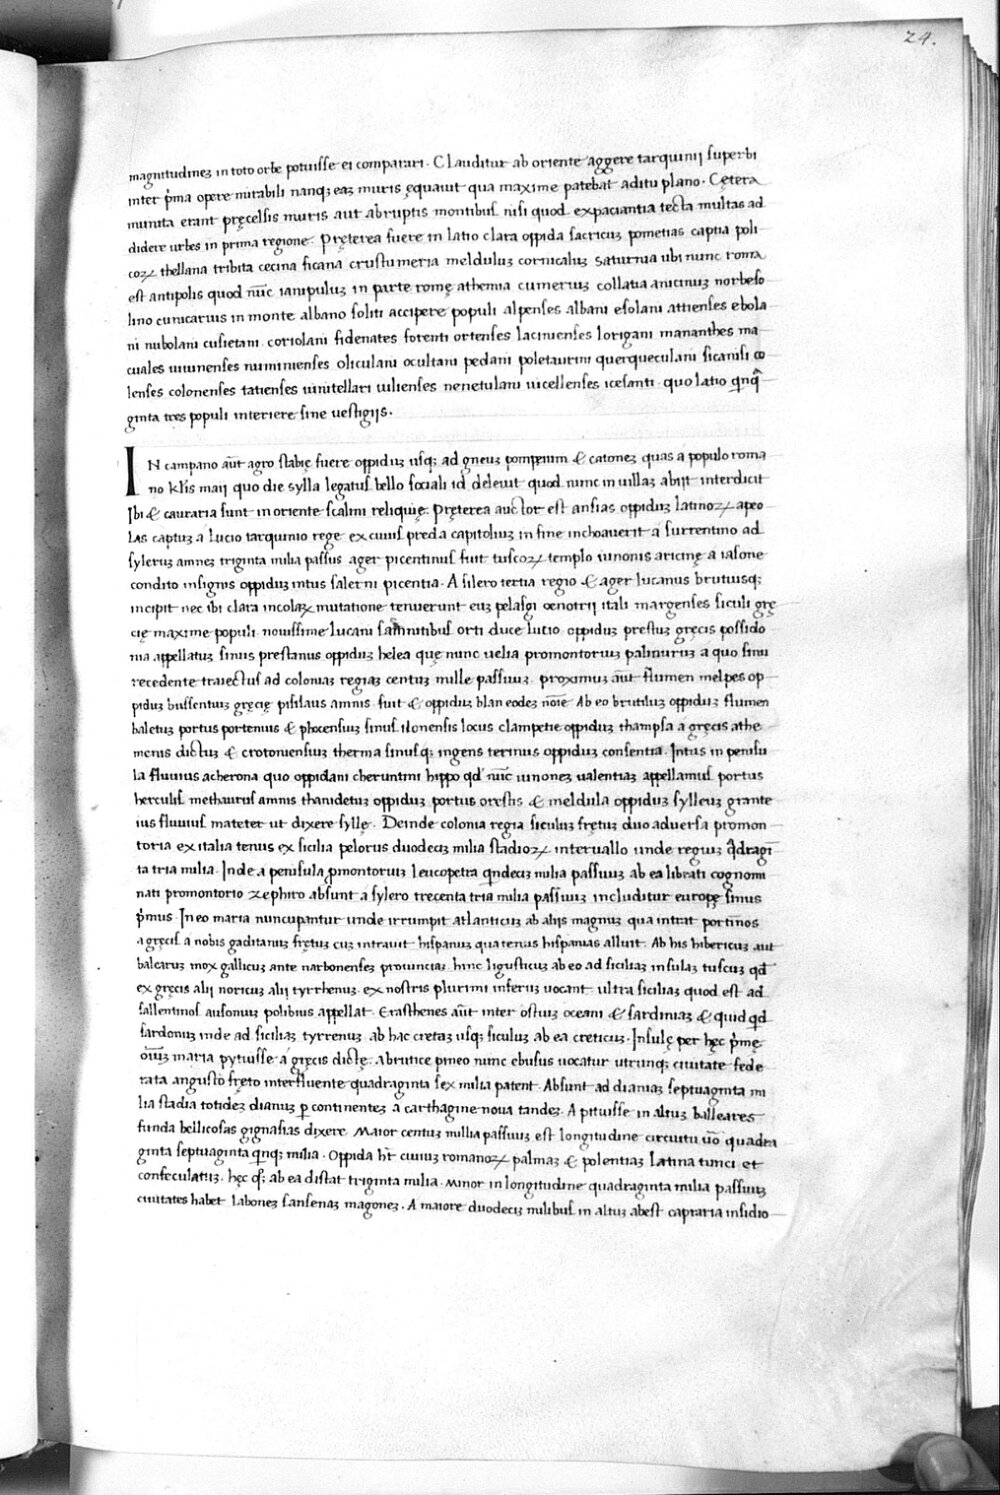 24.
magnitudineꝫ in toto orbe potuisse ei comparari. Clauditur ab oriente aggere tarquinij superbi
inter p̓ma opere mirabili nanqꝫ eaꝫ muris ęquauit qua maxime patebat aditu plano. Cętera
munita erant pręcelsis muris aut abruptis montibus nisi quod expaciantia tecta multas ad
didere urbes in prima regione. Pręterea fuere in latio clara oppida sacricuꝫ pometias captia poli
coꝝ thellana tribita cecina ficana crustumeria melduluꝫ cornicaluꝫ saturnia ubi nunc roma
est antipolis quod nūc ianipuluꝫ in parte romę athemia cumeruꝫ collatia anicinuꝫ norbeso
lino curricaruis in monte albano soliti accipere populi alpenses albani esolani attienses ebola
ni nubolani cusietani. coriolani fidenates forenti ortenses lacinienses lorigani mananthes ma
cuales uiunenses numinienses oliculani ocultani pedani poletaurini querqueculani sicanisi co
lenses colonenses tatienses uinitellari uilienses nenetulani uicellenses icesanti. quo latio q̄nq̄
ginta tres populi interiere sine uestigijs.
IN campano aūt agro stabię fuere oppiduꝫ usqꝫ ad gneuꝫ pompeium & catoneꝫ quas a populo roma
no kl̄is maij quo die sylla legatus bello sociali id deleuit quod nunc in uillaꝫ abijt interdicit
Ibi & cauraria sunt in oriente scalmi reliquię. Pręterea auctor est ansias oppiduꝫ latinoꝝ apeo
las captuꝫ a lucio tarquinio rege ex cuius preda capitoliuꝫ in fine inchoauerit a surrentino ad
syleruꝫ amneꝫ triginta milia passus ager picentinus fuit tuscoꝝ templo iunonis aricinę a iasone
condito insignis oppiduꝫ intus salerni picentia. A silero tertia regio & ager lucanus brutiusqꝫ
incipit nec ibi clara incolaꝝ mutatione tenuerunt euꝫ pelasgi oenotrij itali margenses siculi grę
cię maxime populi. nouissime lucani samnitibus orti duce lucio. oppiduꝫ prestuꝫ gręcis possido
nia appellatuꝫ sinus prestanus oppiduꝫ helea quę nunc uelia promontoriuꝫ palinuruꝫ a quo sinu
recedente traiectus ad colonias regiaꝫ centuꝫ mille passuuꝫ. proximuꝫ aūt flumen melpes op
piduꝫ bussentuꝫ gręcię pisilaus amnis fuit & oppiduꝫ blan eodeꝫ noīe. Ab eo brutiluꝫ oppiduꝫ flumen
baletuꝫ portus portenius & phocensiuꝫ sinus ilonensis locus clampetie oppiduꝫ thampsa a gręcis athe
menis dictuꝫ & crotoniensiuꝫ therma sinusqꝫ ingens terinus oppiduꝫ consentia. Intus in penisu
la fluuius acherona quo oppidani cheruntini hippo qd̓ nūc iunoneꝫ ualentiaꝫ appellamus portus
herculis methaurus amnis thanidetuꝫ oppiduꝫ portus orestis & meldula oppiduꝫ sylleuꝫ grante
ius fluuius mateter ut dixere syllę. Deinde colonia regia siculuꝫ frętuꝫ duo aduersa promon
toria ex italia tenus ex sicilia pelorus duodeciꝫ milia stadioꝝ interuallo unde reguiꝫ q̄dragi̅
ta tria milia. Inde a penisula p̓montoriuꝫ leucopetra q̄ndeciꝫ milia passuuꝫ ab ea librati cognomi
nati promontorio zephiro absunt a sylero trecenta tria milia passuuꝫ includitur europę sinus
p̓mus. In eo maria nuncupantur unde irrumpit atlanticuꝫ ab alijs magnuꝫ qua intrat portinos
a gręcis a nobis gaditanuꝫ frętuꝫ cuꝫ intrauit hispanuꝫ quatenus hispanias alluit. Ab his hibericuꝫ aut
balearuꝫ mox gallicuꝫ ante narbonenseꝫ prouinciaꝫ. hinc ligusticuꝫ ab eo ad siciliaꝫ insulaꝫ tuscuꝫ qd̄
ex gręcis alij noricuꝫ alij tyrrhenuꝫ. ex nostris plurimi inferuꝫ uocant. ultra siciliaꝫ quod est ad
sallentinos ausoniuꝫ polibius appellat. Erasthenes aūt inter ostiuꝫ oceani & sardiniaꝫ & quid qd̄
sardonuꝫ inde ad siciliaꝫ tyrrenuꝫ. ab hac cretaꝫ usqꝫ siculuꝫ ab ea creticuꝫ. Insulę per hęc p̓mę
oīuꝫ maria pytiusse a gręcis dictę. abrutice pineo nunc ebusus uocatur utrunqꝫ ciuitate fede
rata angusto fręto interfluente quadraginta sex milia patent. Absunt ad dianiaꝫ septuaginta mi
lia stadia totideꝫ dianiuꝫ p̲ continenteꝫ a carthagine noua tandeꝫ. A pituisse in altuꝫ balleares
funda bellicosas gignasias dixere. Maior centuꝫ millia passuuꝫ est longitudine circuitu uō quadra
ginta septuaginta q̄nqꝫ milia. Oppida hr̄ ciuiuꝫ romanoꝝ palmaꝫ & polentiaꝫ latina tunci et
confeculatuꝫ. hęc qꝫ ab ea distat triginta milia. Minor in longitudine quadraginta milia passuuꝫ
ciuitates habet laboneꝫ sansenaꝫ magoneꝫ. A maiore duodeciꝫ milibus in altuꝫ abest capraria insidio